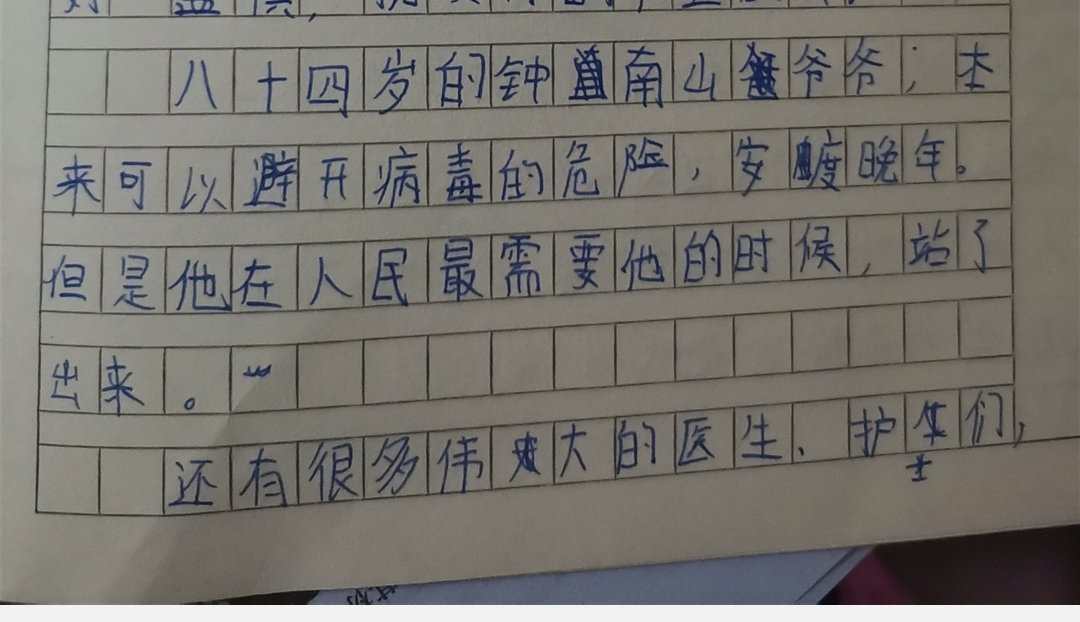 八十四岁的钟南山爷爷，本
来可以避开病毒的危险，安度晚年。
但是他在人民最需要他的时候，站了
出来。
还有很多伟大的医生、护士们，